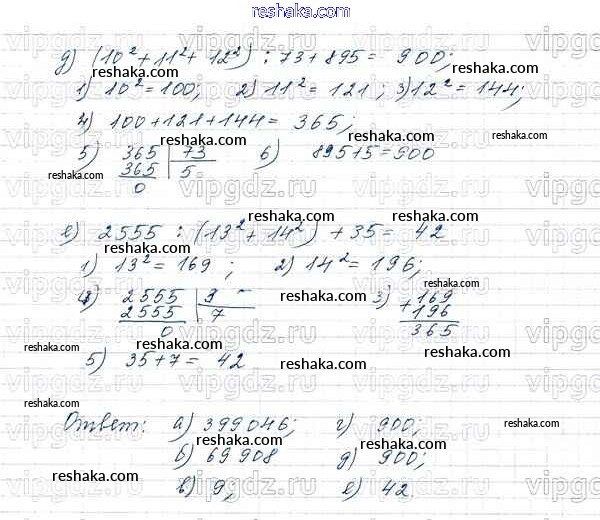 reshaka.com
д) (10² + 11² + 12²) : 73 + 895 = 900;
1) 10² = 100; 2) 11² = 121; 3) 12² = 144;
4) 100 + 121 + 144 = 365;
5) 365 | 73 6) 895 + 5 = 900
365 5
0
е) 2555 : (13² + 14²) + 35 = 42
1) 13² = 169; 2) 14² = 196;
2555 | 3) 169
2555 7 + 196
0 365
5) 35 + 7 = 42
Ответ: а) 399046; г) 900;
б) 69908 д) 900;
в) 9; е) 42.
reshaka.com
vipgdz.ru